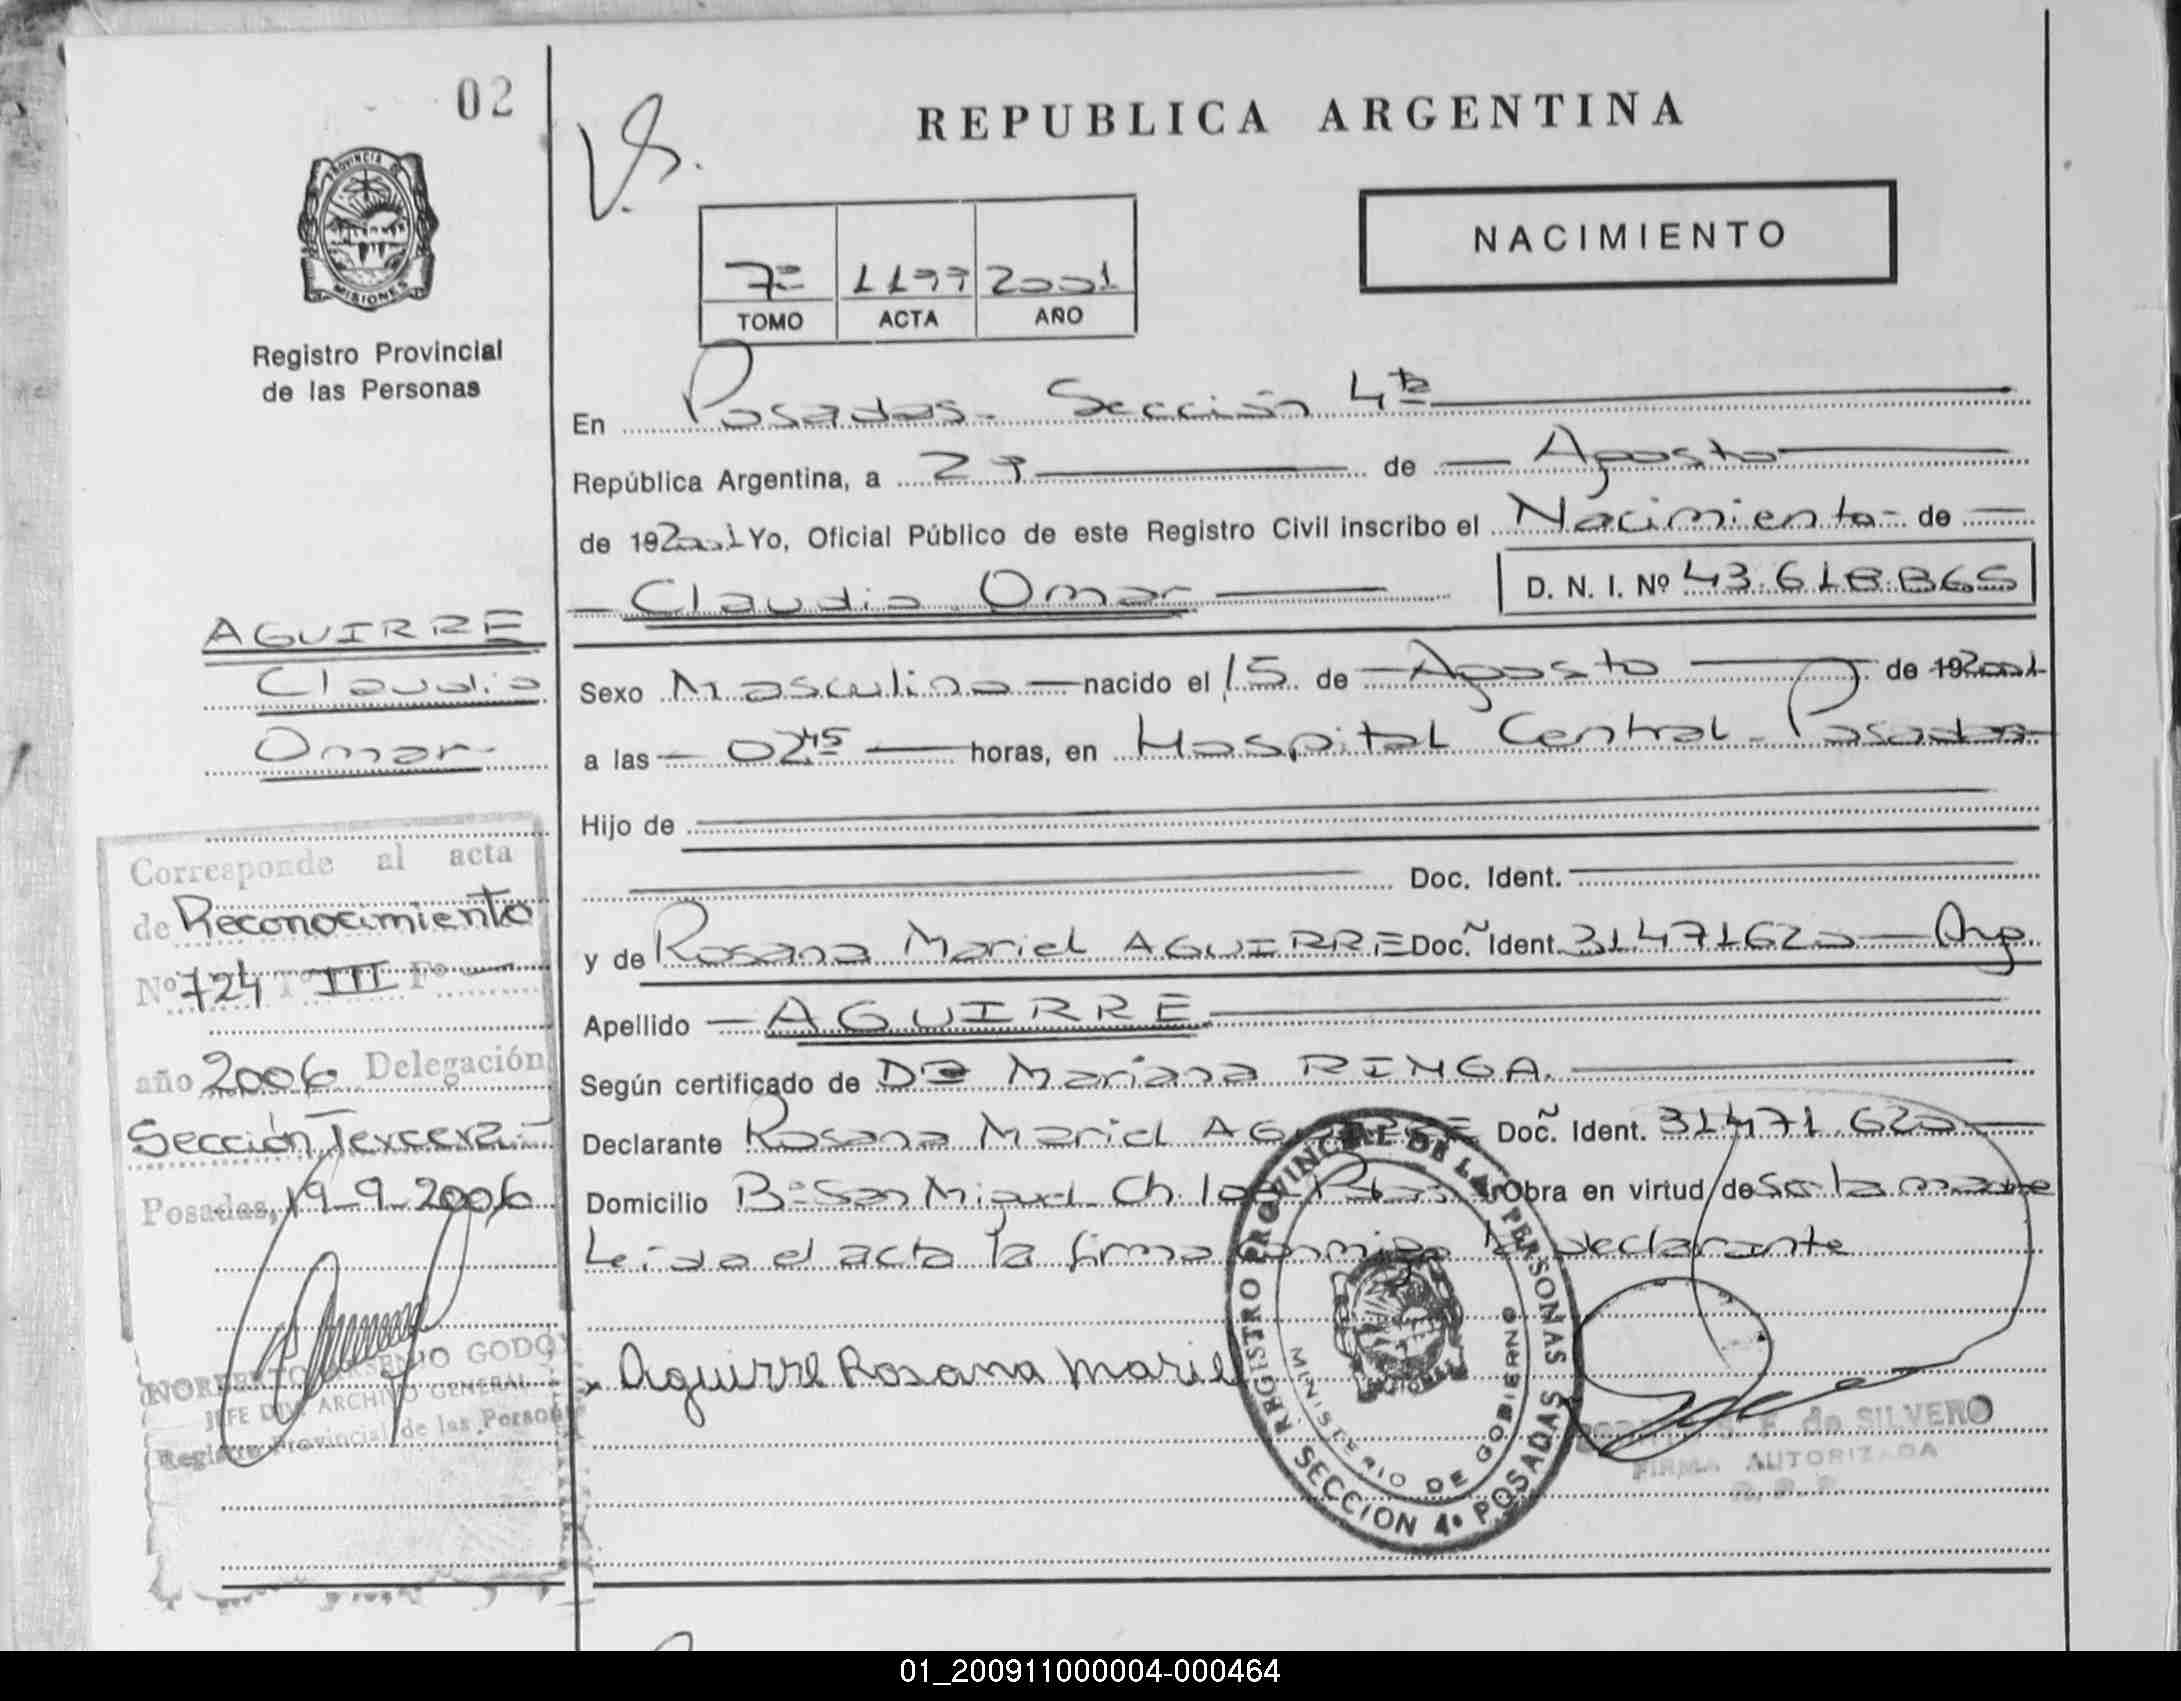 02
REPUBLICA ARGENTINA
PROVINCIA DE
MISIONES
Registro Provincial
de las Personas
NACIMIENTO
7º 1199 2001
TOMO ACTA AÑO
En Posadas - Sección 4ta
República Argentina, a 29 de Agosto
de 192001 Yo, Oficial Público de este Registro Civil inscribo el Nacimiento - de
Claudio Omar D. N. I. Nº 43.618.865
Sexo Masculino nacido el 15 de Agosto de 192001
a las 02,45 horas, en Hospital Central - Posadas
Hijo de
Doc. Ident.
y de Rosana Mariel AGUIRRE Doc. Ident. 31471620 - Arg.
Apellido - AGUIRRE
Según certificado de Mariana RINGA.
Declarante Rosana Mariel AGUIRRE Doc. Ident. 31471.620
Domicilio Bº San Miguel Ch. Obra en virtud de ser la madre
Leída el acta la firma conmigo la declarante
Aguirre Rosana Mariel
AGUIRRE
Claudio
Omar
Corresponde al acta
de Reconocimiento
Nº 724 Tº III Fº
año 2006 Delegación
Sección Tercera.-
Posadas, 19-9-2006
NORBERTO ARSENIO GODOY
JEFE DIV. ARCHIVO GENERAL
Registro Provincial de las Personas
REGISTRO PROVINCIAL DE LAS PERSONAS
MINISTERIO DE GOBIERNO
SECCION 4ª POSADAS
F. de SILVERO
FIRMA AUTORIZADA
01_200911000004-000464